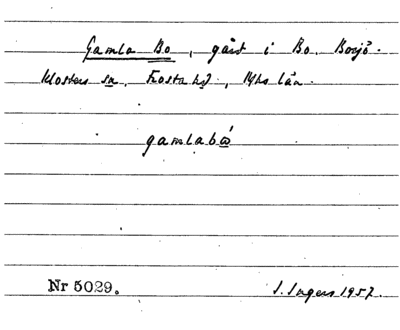 Gamla Bo, gård i Bo. Bosjö-
klosters sn, Frosta hd, Mhs län.
gamlabo
Nr 5029.
I. Ingers 1957.